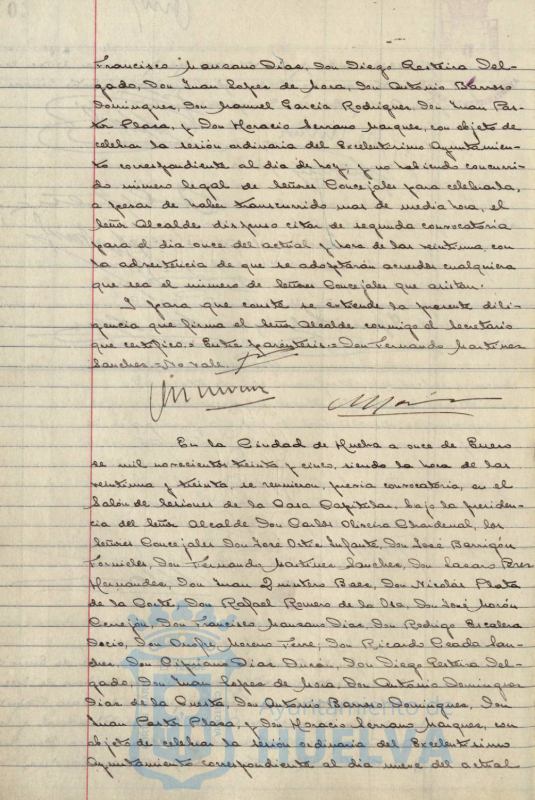 Francisco Manzano Díaz, Don Diego Reiteira Del-
gado, Don Juan Lopez de Mora, Don Antonio Barroso
Dominguez, Don Manuel García Rodriguez, Don Juan Pas-
tor Plaza, y Don Horacio Serrano Marquez, con objeto de
celebrar la sesión ordinaria del Excelentísimo Ayuntamien-
to correspondiente al día de hoy, y no habiendo concurri-
do número legal de Señores Concejales para celebrarla,
a pesar de haber transcurrido mas de media hora, el
Señor Alcalde dispuso citar de segunda convocatoria
para el día once del actual y hora de las veintiuna, con
la advertencia de que se adoptarán acuerdos cualquiera
que sea el número de Señores Concejales que asistan.
Y para que conste se extiende la presente dili-
gencia que firma el Señor Alcalde conmigo el Secretario
que certifico.= Entre parentesis = Don Fernando Martinez
Sanchez = No vale.
En la Ciudad de Huelva a once de Enero
de mil novecientos treinta y cinco, siendo la hora de las
veintiuna y treinta, se reunieron, previa convocatoria, en el
Salón de Sesiones de la Casa Capitular, bajo la presiden-
cia del Señor Alcalde Don Carlos Oliveira Chardenal, los
Señores Concejales Don José Ortiz Infante, Don José Barrigón
Fornieles, Don Fernando Martinez Sanchez, Don Lazaro Perez
Hernandez, Don Juan Quintero Baez, Don Nicolás Plata
de la Corte, Don Rafael Romero de la Osa, Don José Morón
Cerrejón, Don Francisco Manzano Diaz, Don Rodrigo Escalera
Docio, Don Onofre Moreno Ferre, Don Ricardo Ceada San-
chez, Don Cipriano Diaz Durán, Don Diego Reiteira Del-
gado, Don Juan Lopez de Mora, Don Antonio Dominguez
Diaz de la Cuesta, Don Antonio Barroso Dominguez, Don
Juan Pastor Plaza, y Don Horacio Serrano Marquez, con
objeto de celebrar la sesión ordinaria del Excelentísimo
Ayuntamiento correspondiente al día nueve del actual
Ayuntamiento de
HUELVA